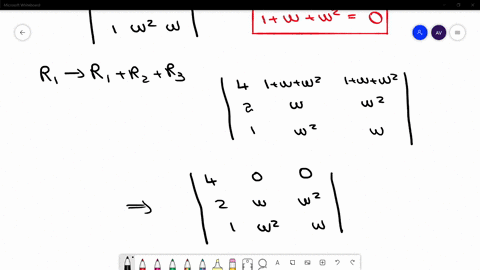 Microsoft Whiteboard
1 ω² ω
1+ω+ω² = 0
AV
R₁ → R₁+R₂+R₃
4 1+ω+ω² 1+ω+ω²
2 ω ω²
1 ω² ω
⇒
4 0 0
2 ω ω²
1 ω² ω